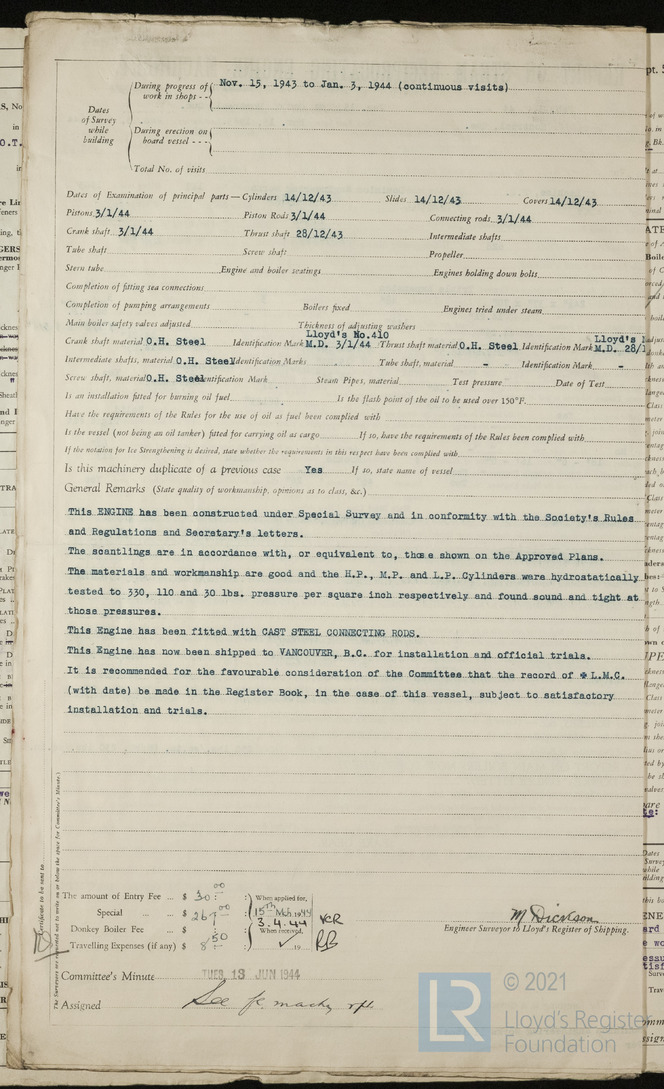 Dates of Survey while building
During progress of work in shops - - Nov. 15, 1943 to Jan. 3, 1944 (continuous visits)
During erection on board vessel - - -
Total No. of visits
Dates of Examination of principal parts — Cylinders 14/12/43 Slides 14/12/43 Covers 14/12/43
Pistons 3/1/44 Piston Rods 3/1/44 Connecting rods 3/1/44
Crank shaft 3/1/44 Thrust shaft 28/12/43 Intermediate shafts
Tube shaft Screw shaft Propeller
Stern tube Engine and boiler seatings Engines holding down bolts
Completion of fitting sea connections
Completion of pumping arrangements Boilers fixed Engines tried under steam
Main boiler safety valves adjusted Thickness of adjusting washers
Crank shaft material O.H. Steel Identification Mark Lloyd's No.410 M.D. 3/1/44 Thrust shaft material O.H. Steel Identification Mark Lloyd's M.D. 28/1
Intermediate shafts, material O.H. Steel Identification Marks Tube shaft, material - Identification Mark -
Screw shaft, material O.H. Steel Identification Mark Steam Pipes, material Test pressure Date of Test
Is an installation fitted for burning oil fuel Is the flash point of the oil to be used over 150°F.
Have the requirements of the Rules for the use of oil as fuel been complied with
Is the vessel (not being an oil tanker) fitted for carrying oil as cargo If so, have the requirements of the Rules been complied with
If the notation for Ice Strengthening is desired, state whether the requirements in this respect have been complied with
Is this machinery duplicate of a previous case Yes If so, state name of vessel
General Remarks (State quality of workmanship, opinions as to class, &c.)
This ENGINE has been constructed under Special Survey and in conformity with the Society's Rules
and Regulations and Secretary's letters.
The scantlings are in accordance with, or equivalent to, those shown on the Approved Plans.
The materials and workmanship are good and the H.P., M.P. and L.P. Cylinders were hydrostatically
tested to 330, 110 and 30 lbs. pressure per square inch respectively and found sound and tight at
those pressures.
This Engine has been fitted with CAST STEEL CONNECTING RODS.
This Engine has now been shipped to VANCOUVER, B.C. for installation and official trials.
It is recommended for the favourable consideration of the Committee that the record of ✠ L.M.C.
(with date) be made in the Register Book, in the case of this vessel, subject to satisfactory
installation and trials.
The amount of Entry Fee ... $ 30:00 When applied for,
Special ... ... $ 267:00 15th Mch 1944
Donkey Boiler Fee ... $ : 3.4.44
When received,
Travelling Expenses (if any) $ 8:50 ✓ 19
M Dickson
Engineer Surveyor to Lloyd's Register of Shipping.
Committee's Minute TUES. 13 JUN 1944
Assigned See
© 2021
Lloyd's Register
Foundation
LR